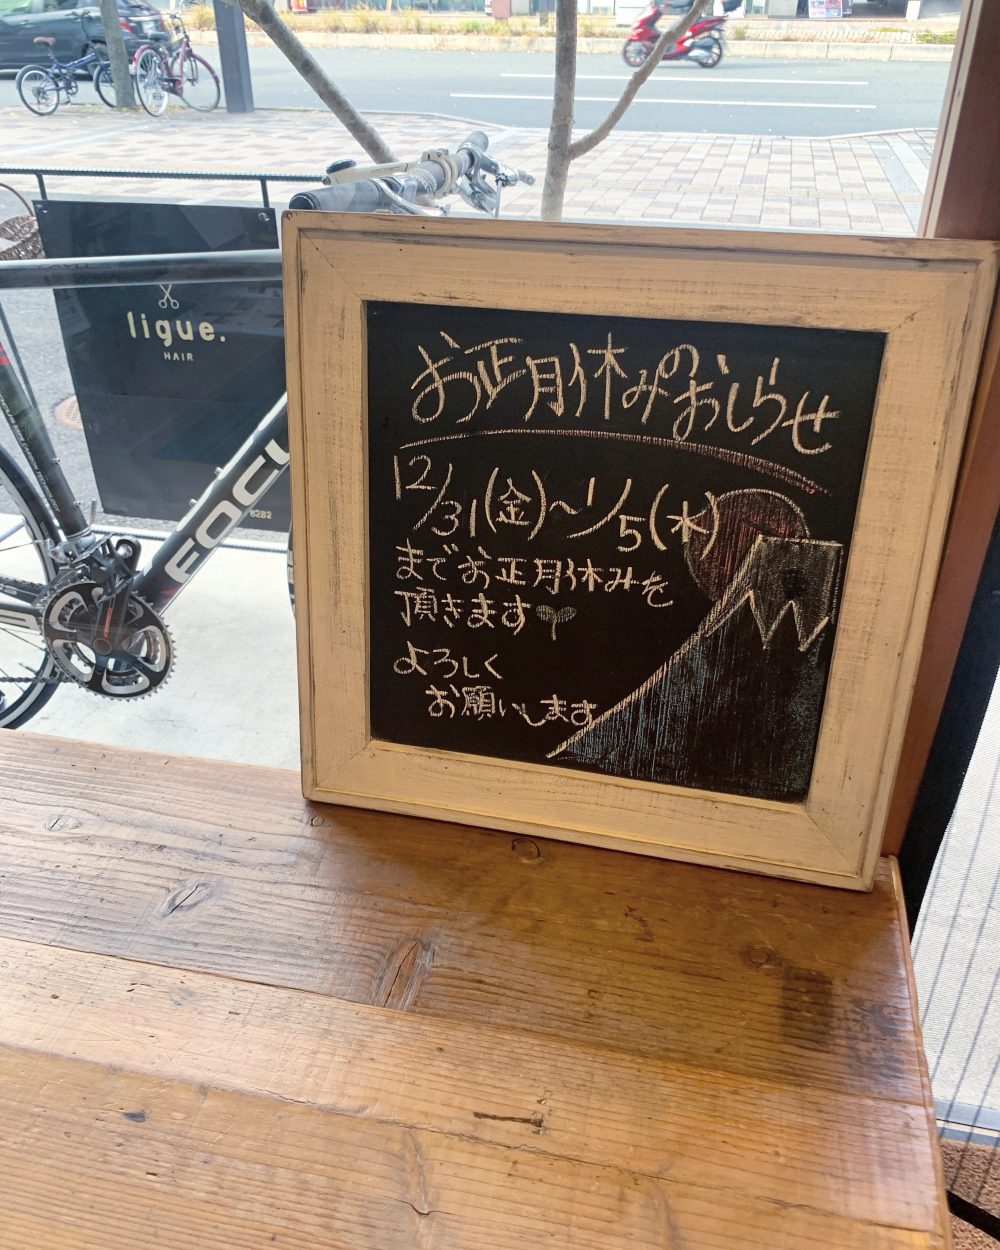 お正月休みのおしらせ
12/31(金)～1/5(水)
までお正月休みを
頂きます
よろしく
お願いします
ligue.
HAIR
8282
FOCU